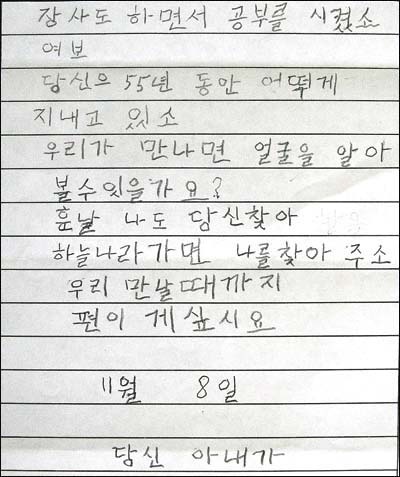 장사도 하면서 공부를 시켰소
여보
당신으 55년 동안 어떻게
지내고 있소
우리가 만나면 얼굴을 알아
볼수잇을가요?
훗날 나도 당신찾아
하늘나라가면 나를찾아 주소
우리 만날때까지
편이 게싶시요
11월 8일
당신 아내가